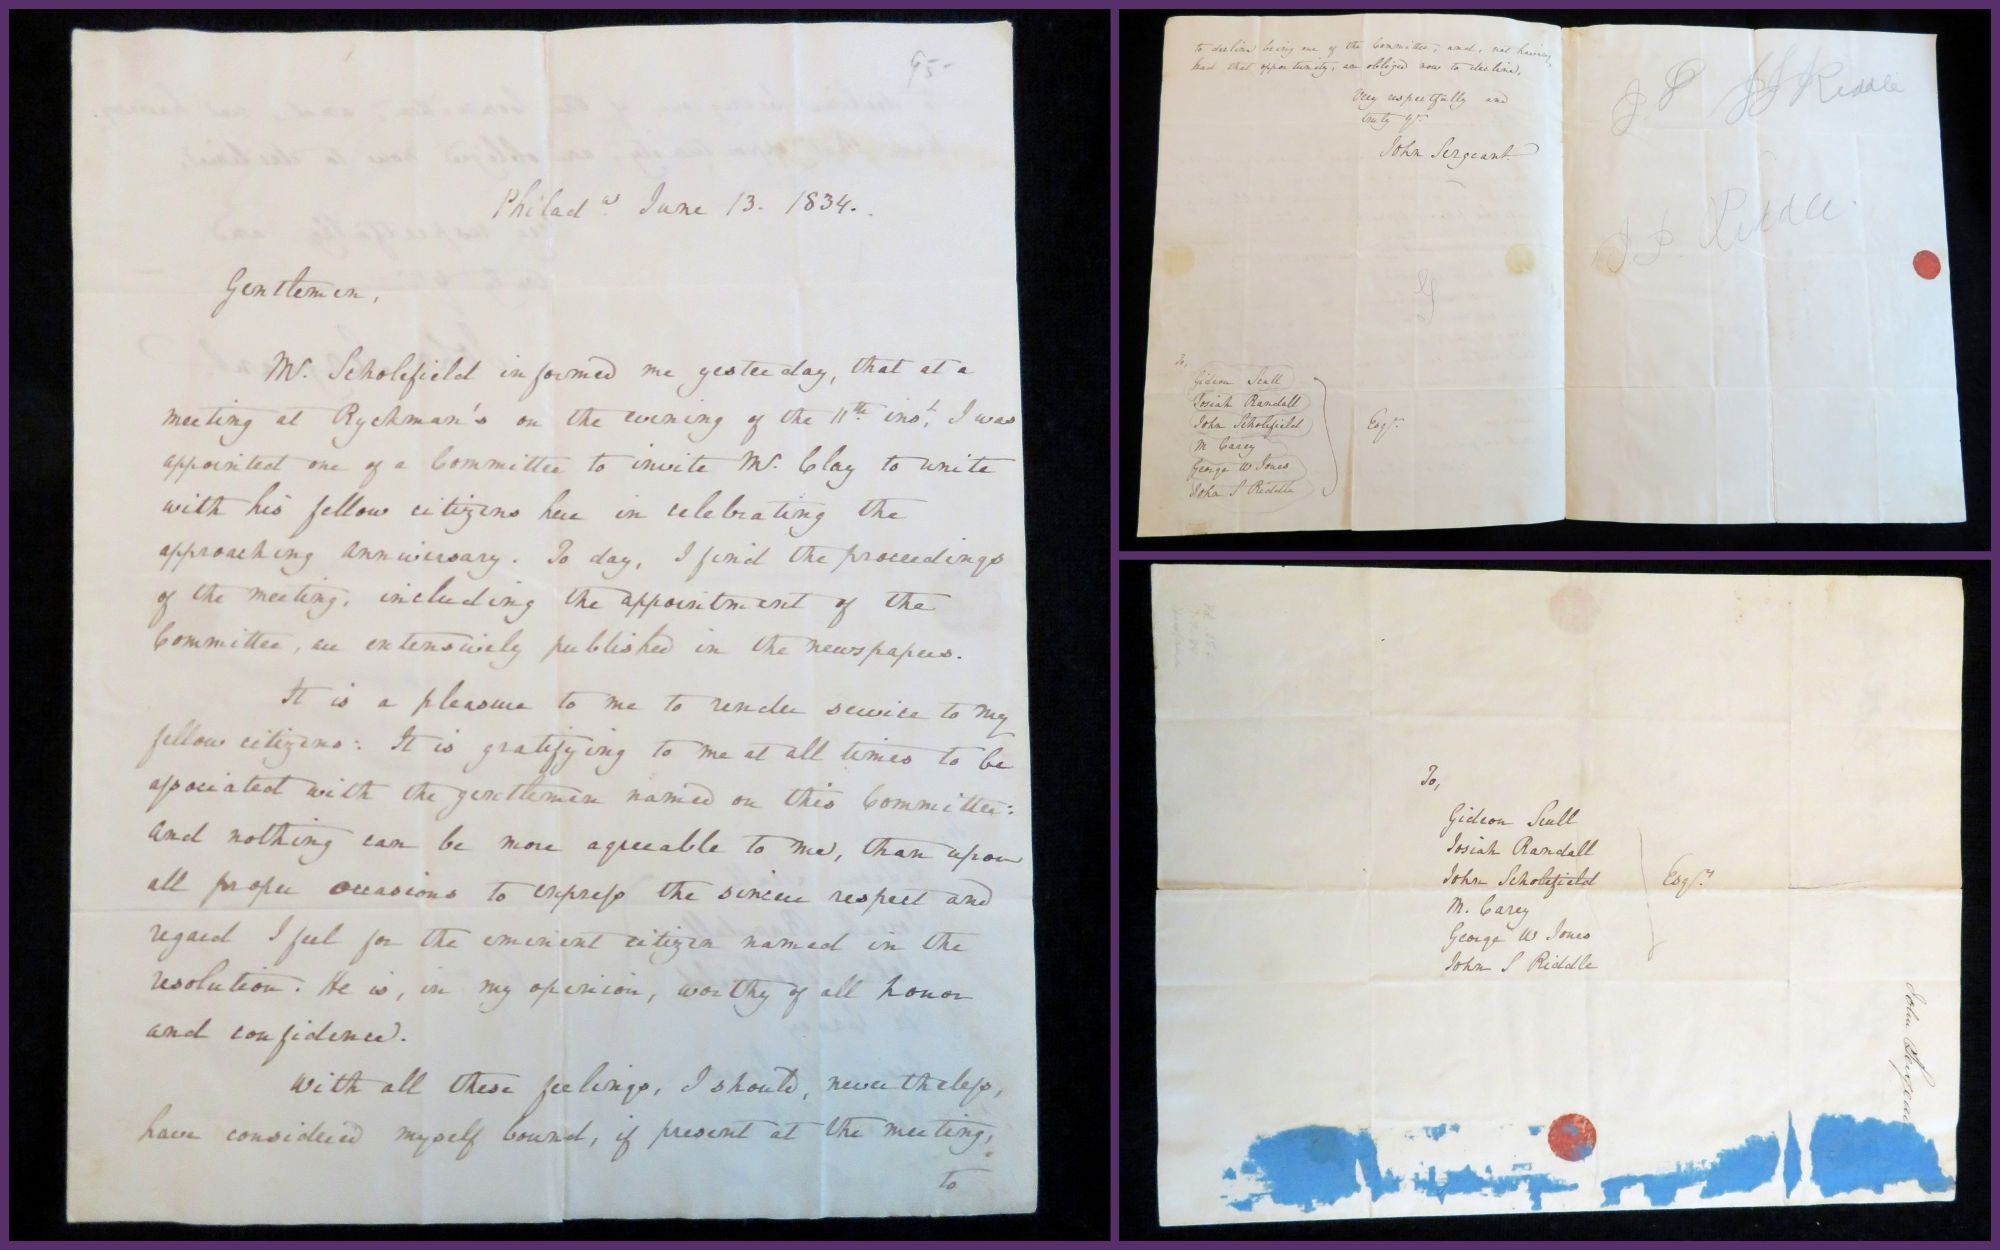 95-
Philad.ᵃ June 13. 1834.
Gentlemen,
Mr. Scholefield informed me yesterday, that at a
meeting at Ryckman's on the evening of the 11th inst. I was
appointed one of a Committee to invite Mr. Clay to unite
with his fellow citizens here in celebrating the
approaching Anniversary. To day, I find the proceedings
of the meeting, including the appointment of the
Committee, are extensively published in the newspapers.
It is a pleasure to me to render service to my
fellow citizens: It is gratifying to me at all times to be
associated with the gentlemen named on this Committee:
and nothing can be more agreeable to me, than upon
all proper occasions to express the sincere respect and
regard I feel for the eminent citizen named in the
resolution. He is, in my opinion, worthy of all honor
and confidence.
With all these feelings, I should, nevertheless,
have considered myself bound, if present at the meeting,
to
to decline being one of the Committee; and, not having
had that opportunity, am obliged now to decline.
Very respectfully and
truly yr.
John Sergeant.
To,
Gideon Scull
Josiah Randall
John Scholefield
M Carey
George W Jones
John S Riddle
Esqrs.
J S JJ Riddle
J S. Riddle.
To,
Gideon Scull
Josiah Randall
John Scholefield
M. Carey
George W Jones
John S Riddle
Esqrs.
John Sergeant